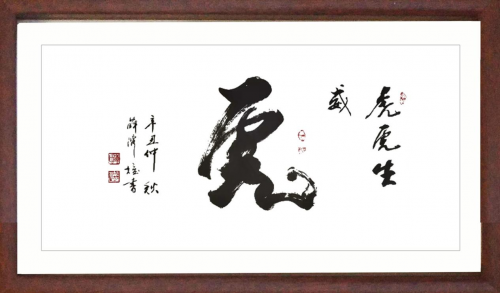 虎虎生
威
虎
辛丑仲秋
薛泽培书